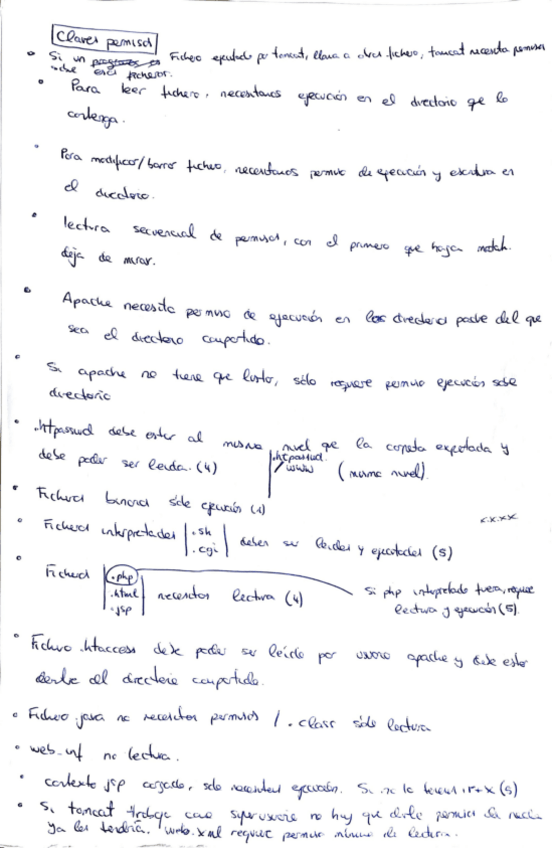 Claves permisos
• Si un fichero ejecutado por tomcat, llama a otros fichero, tomcat necesita permisos
sobre esos ficheros.
• Para leer fichero, necesitamos ejecución en el directorio que lo
contenga.
• Para modificar/borrar fichero, necesitamos permiso de ejecución y escritura en
el directorio.
• lectura secuencial de permisos, con el primero que hagan match.
deja de mirar.
• Apache necesita permiso de ejecución en los directorios padre del que
sea el directorio compartido.
• Si apache no tiene que listar, sólo requiere permiso ejecución sobre
directorio
• .htpasswd debe estar al mismo nivel que la carpeta exportada y
debe poder ser leida. (4) .htpasswd
/www (mismo nivel).
• Ficheros binarios sólo ejecución (1)
• Ficheros interpretados .sh
.cgi deben ser leidos y ejecutados (5)
• Ficheros .php
.html
.jsp necesitan lectura (4) Si php interpretado fuera, requiere
lectura y ejecución (5).
• Fichero .htaccess debe poder ser leído por usuario apache y debe estar
dentro del directorio compartido.
• Fichero .java no necesitan permisos / .class sólo lectura
• web-inf no lectura.
• contexto jsp cargado, solo necesitan ejecución. Si no lo r+x (5)
• Si tomcat trabaja como superusuario no hay que darle permisos
ya los tendría. web.xml requiere permiso mínimo de lectura.